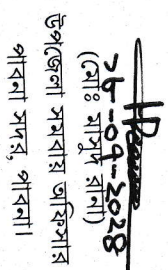 ১৮-০৭-২০২৪
(মোঃ মাসুদ রানা)
উপজেলা সমবায় অফিসার
পাবনা সদর, পাবনা।